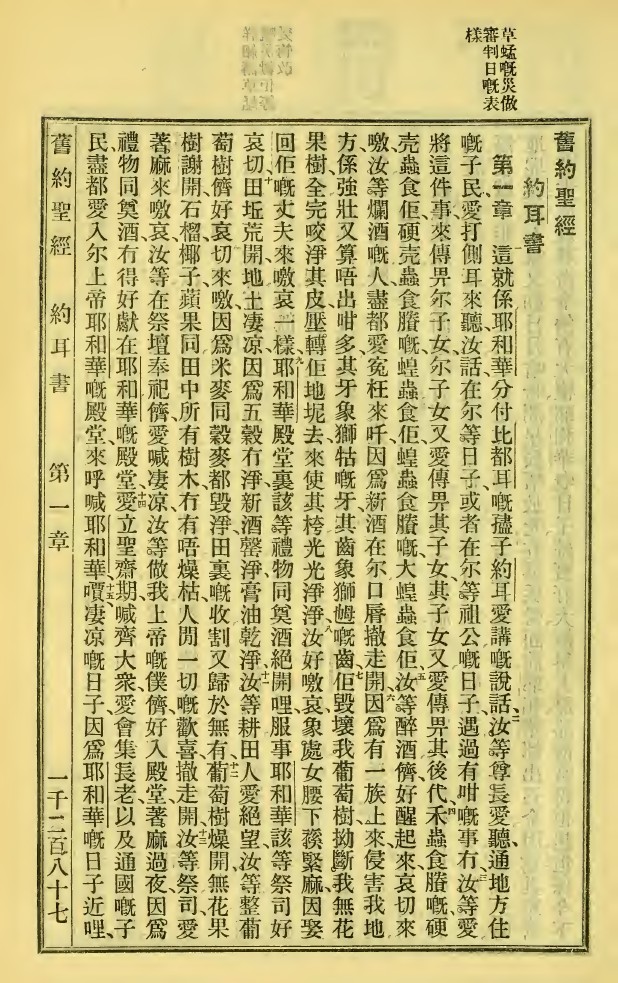 草蜢嘅災做
審判日嘅表
樣
舊約聖經
約耳書
第一章 這就係耶和華分付比都耳嘅孻子約耳愛講嘅說話、二汝等尊長愛聽、通地方住
嘅子民愛打側耳來聽、汝話在尔等日子、或者在尔等祖公嘅日子、遇過有咁嘅事冇、三汝等愛
將這件事來傳畀尔子女、尔子女又愛傳畀其子女、其子女又愛傳畀其後代、四禾蟲食賸嘅硬
壳蟲食佢、硬壳蟲食賸嘅蝗蟲食佢、蝗蟲食賸嘅大蝗蟲食佢、五汝等醉酒儕好醒起來哀切來
噭、汝等爛酒嘅人盡都愛冤枉來吀、因爲新酒在尔口唇撤走開、六因爲有一族上來侵害我地
方、係強壯又算唔出咁多、其牙象獅牯嘅牙、其齒象獅嘅齒、七佢毀壞我葡萄樹、拗斷我無花
果樹、全完咬淨其皮、壓轉佢地坭去、來使其桍光光淨淨、八汝好噭哀象處女腰下緊麻因娶
回佢嘅丈夫來噭哀一樣、九耶和華殿堂裏該等禮物同奠酒絕開哩、服事耶和華該等祭司好
哀切、十田坵荒開、地土凄凉、因爲五穀冇淨、新酒罄淨、膏油乾淨、十一汝等耕田人愛絕望、汝等整葡
萄樹儕好哀切來噭、因爲米麥同穀麥都毀淨、田裏嘅收割又歸於無有、十二葡萄樹燥開、無花果
樹謝開、石榴椰子蘋果同田中所有樹木冇有唔燥枯、人間一切嘅歡喜撤走開、十三汝等祭司愛
著麻來噭哀、汝等在祭壇奉祀儕愛喊凄凉、汝等做我上帝嘅僕儕好入殿堂著麻過夜、因爲
禮物同奠酒冇得好獻在耶和華嘅殿堂、十四愛立聖齋期、喊齊大衆、愛會集長老以及通國嘅子
民、盡都愛入尔上帝耶和華嘅殿堂來呼喊耶和華、十五嘪凄凉嘅日子、因爲耶和華嘅日子近哩、
舊約聖經 約耳書 第一章 一千二百八十七